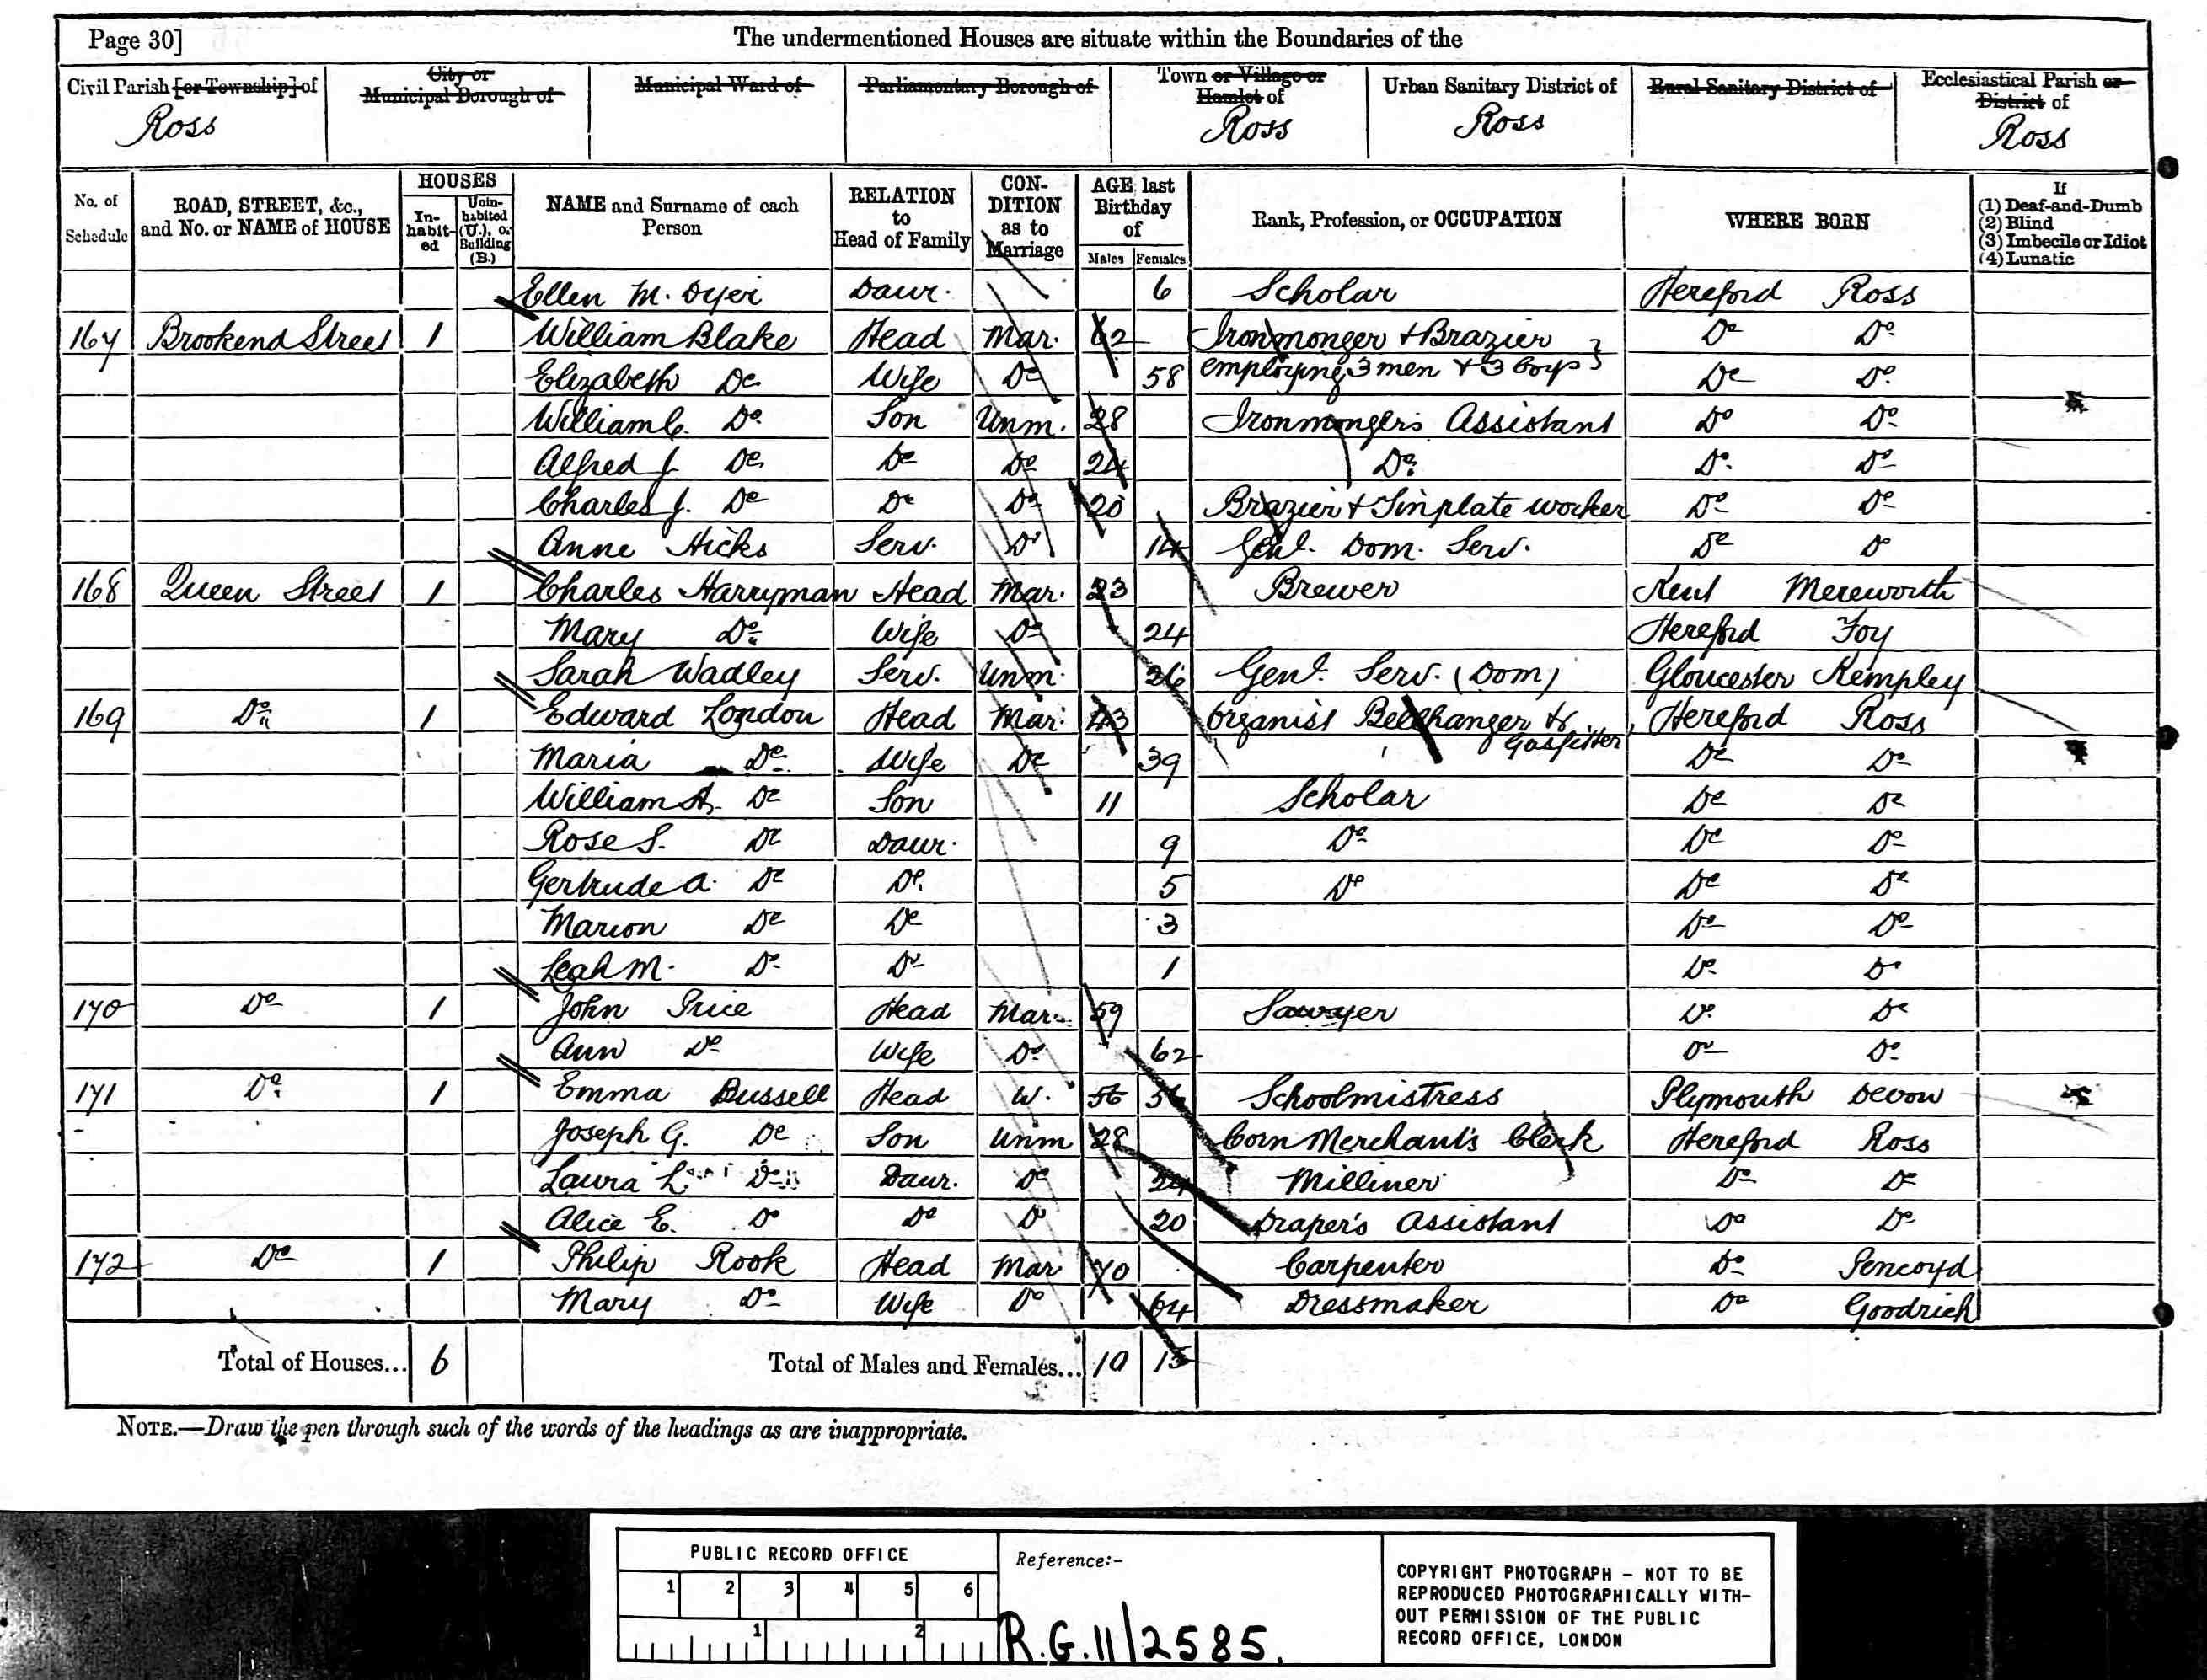 Page 30]
The undermentioned Houses are situate within the Boundaries of the
Civil Parish [or Township] of Ross
City or Municipal Borough of
Municipal Ward of
Parliamentary Borough of
Town or Village or Hamlet of Ross
Urban Sanitary District of Ross
Rural Sanitary District of
Ecclesiastical Parish or District of Ross
No. of Schedule
ROAD, STREET, &c., and No. or NAME of HOUSE
HOUSES
Inhabited
Uninhabited (U.), or Building (B.)
NAME and Surname of each Person
RELATION to Head of Family
CONDITION as to Marriage
AGE last Birthday of
Males Females
Rank, Profession, or OCCUPATION
WHERE BORN
If
(1) Deaf-and-Dumb
(2) Blind
(3) Imbecile or Idiot
(4) Lunatic
Ellen M. Dyer Daur. 6 Scholar Hereford Ross
167 Brookend Street 1 William Blake Head Mar. 62 Ironmonger + Brazier Do Do
Elizabeth Do Wife Do 58 employing 3 men + 3 boys Do Do
William C. Do Son Unm. 28 Ironmongers Assistant Do Do
Alfred J. Do Do Do 24 Do Do Do
Charles J. Do Do Do 20 Brazier + Tinplate worker Do Do
Anne Hicks Serv. Do 14 Genl. Dom. Serv. Do Do
168 Queen Street 1 Charles Harryman Head Mar. 23 Brewer Kent Mereworth
Mary Do Wife Do 24 Hereford Foy
Sarah Wadley Serv. Unm. 26 Genl. Serv. (Dom) Gloucester Kempley
169 Do 1 Edward London Head Mar. 43 Organist Bellhanger & Gasfitter Hereford Ross
Maria Do Wife Do 39 Do Do
William A. Do Son 11 Scholar Do Do
Rose S. Do Daur. 9 Do Do Do
Gertrude A. Do Do 5 Do Do Do
Marion Do Do 3 Do Do
Leah M. Do Do 1 Do Do
170 Do 1 John Price Head Mar. 59 Sawyer Do Do
Ann Do Wife Do 62 Do Do
171 Do 1 Emma Bussell Head W. 56 56 Schoolmistress Plymouth Devon
Joseph G. Do Son Unm 28 Corn Merchant's Clerk Hereford Ross
Laura L. Do Daur. Do 24 Milliner Do Do
Alice E. Do Do Do 20 Draper's Assistant Do Do
172 Do 1 Philip Rook Head Mar 70 Carpenter Do Pencoyd
Mary Do Wife Do 64 Dressmaker Do Goodrich
Total of Houses... 6 Total of Males and Females... 10 15
NOTE.—Draw the pen through such of the words of the headings as are inappropriate.
PUBLIC RECORD OFFICE
1 2 3 4 5 6
1 2
Reference:-
R.G. 11/2585.
COPYRIGHT PHOTOGRAPH - NOT TO BE
REPRODUCED PHOTOGRAPHICALLY WITH-
OUT PERMISSION OF THE PUBLIC
RECORD OFFICE, LONDON